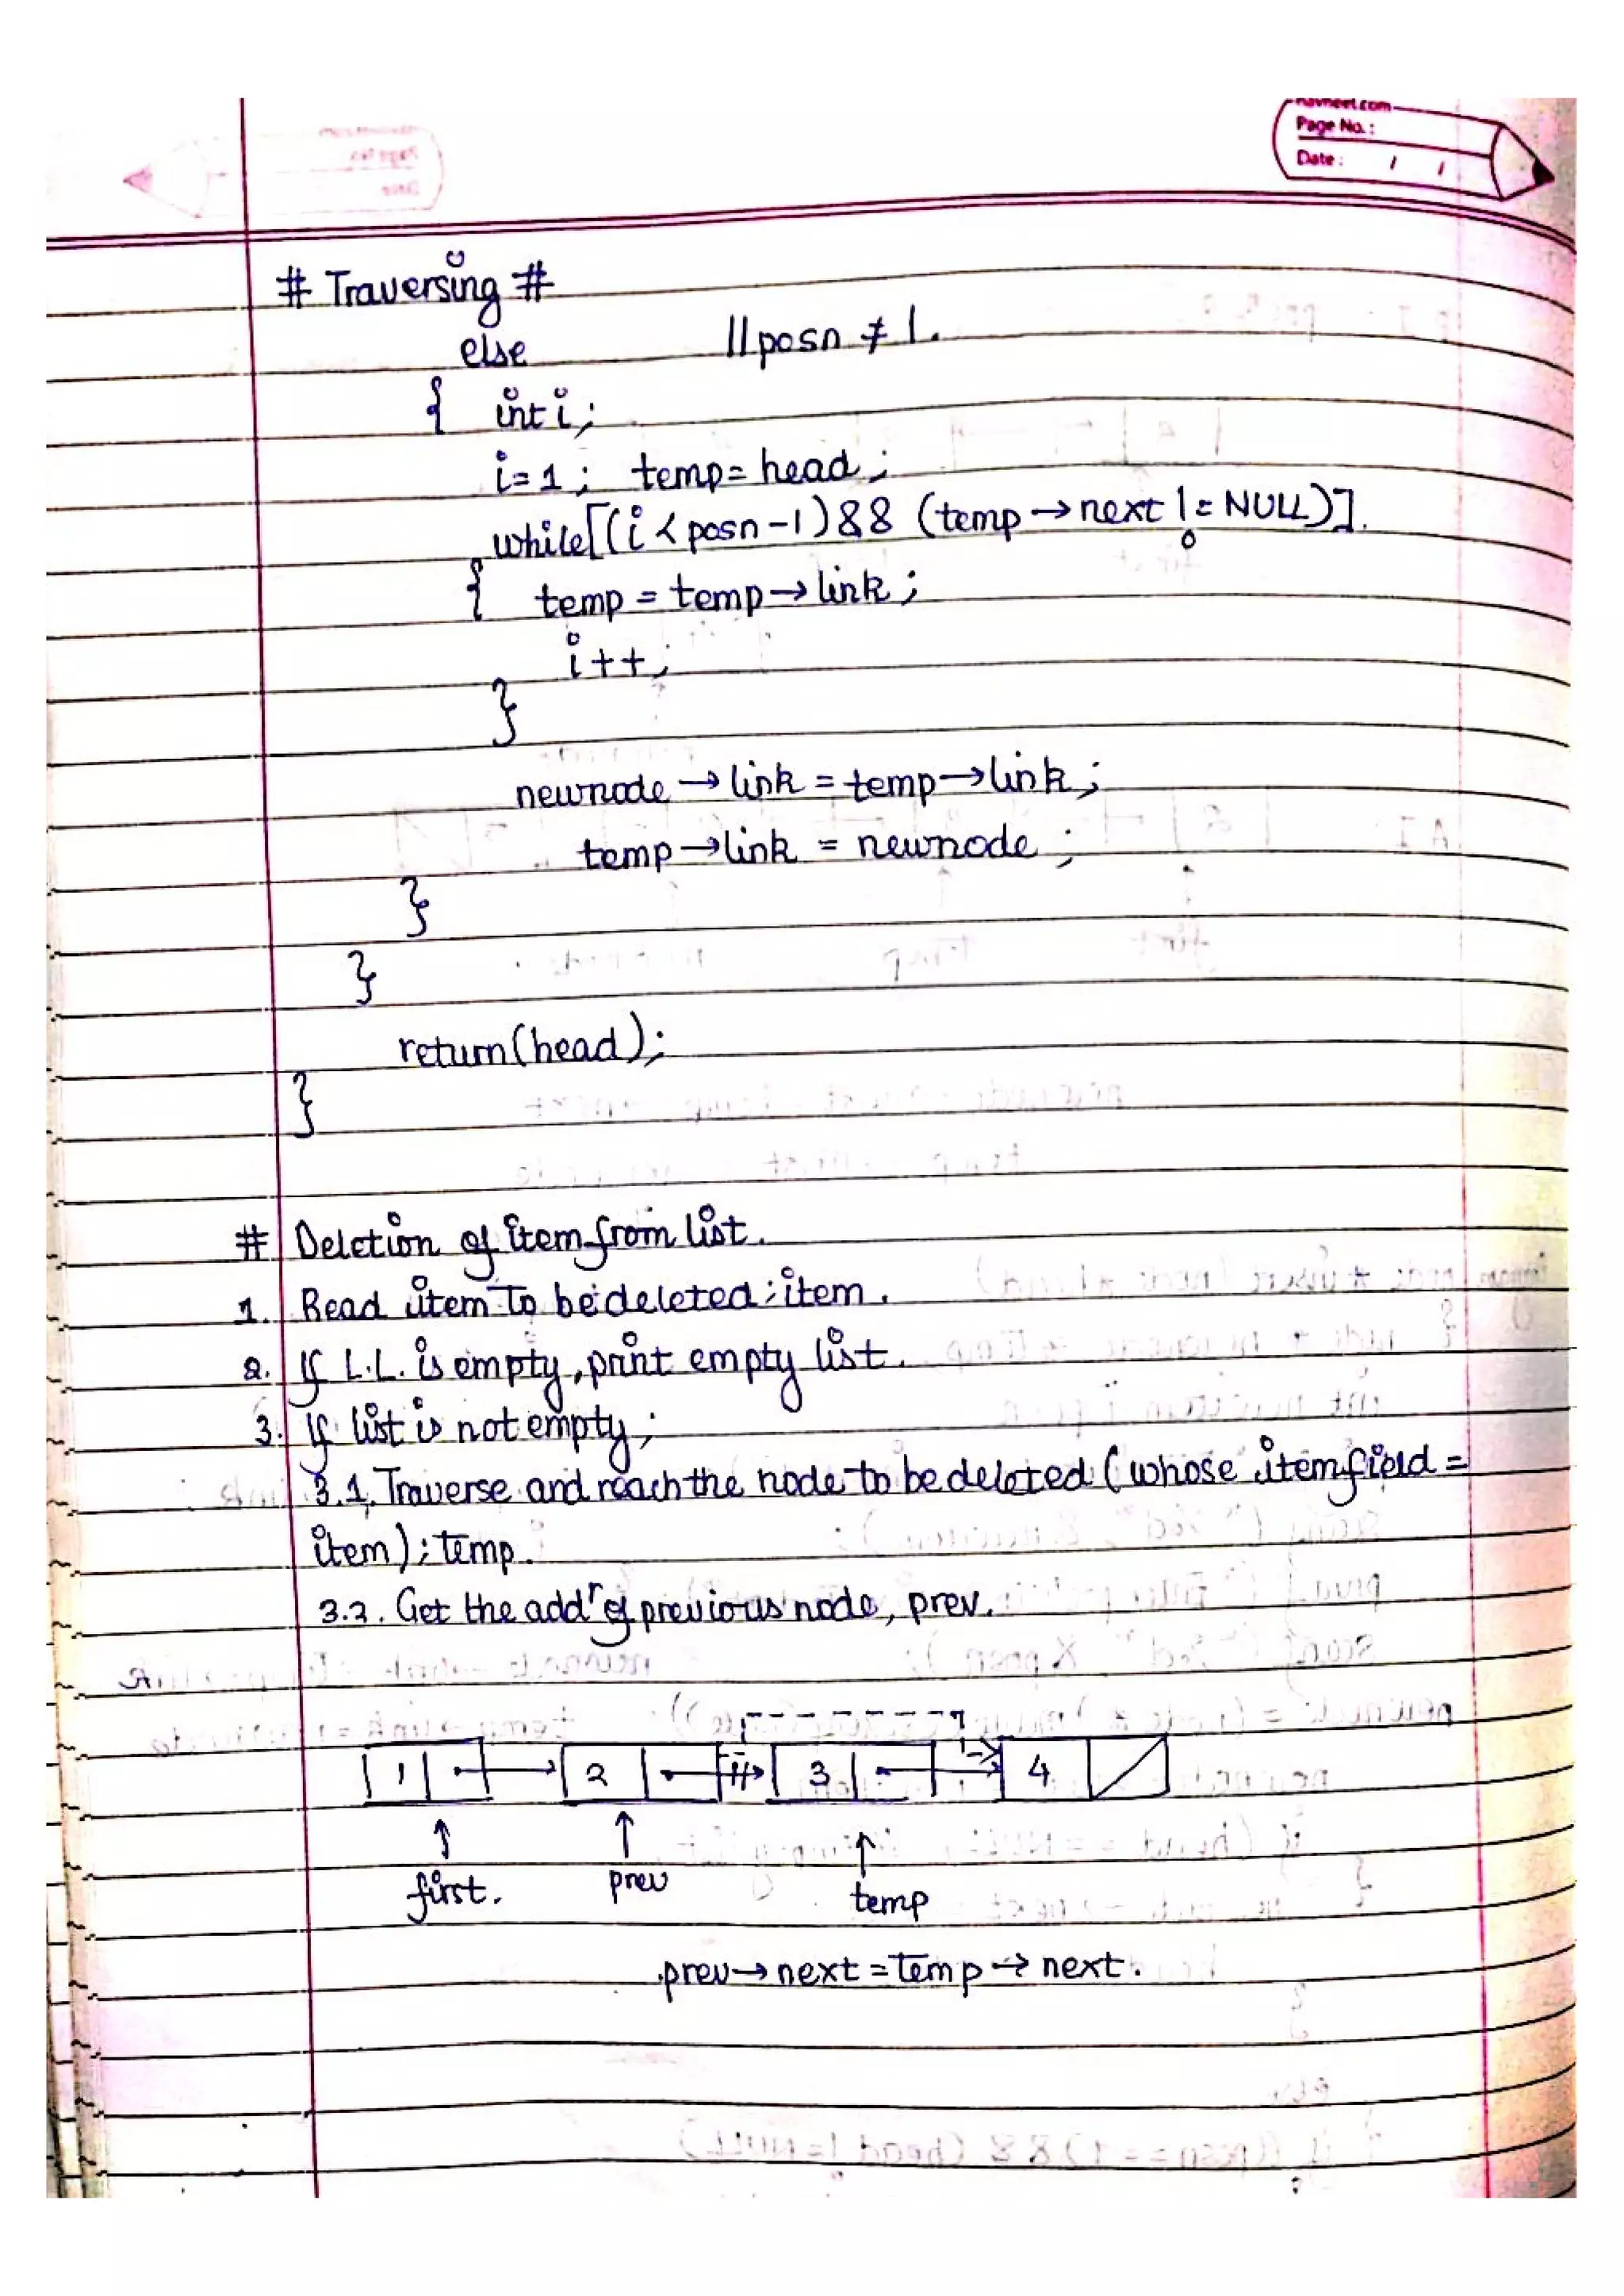 navneet.com
Page No. :
Date : / /
# Traversing #
else //posn ≠ 1.
{ int i;
i=1; temp=head;
while[(i<posn-1)&&(temp→next!=NULL)].
{ temp = temp→link;
i++;
}
newnode→link = temp→link;
temp→link = newnode;
}
}
return(head);
}
# Deletion of item from list.
1. Read item To be deleted : item.
2. If L.L. is empty, print empty list.
3. If list is not empty;
3.1. Traverse and reach the node to be deleted (whose item field =
item); temp.
3.2. Get the addr of previous node, prev.
1 2 3 4
first. prev temp
prev→next = Temp→next.